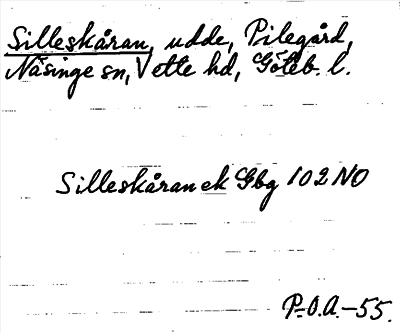 Silleskåran, udde, Pilegård,
Näsinge sn, Vette hd, Göteb. l.
Silleskåran ek Gbg 102 NO
P-O.A.-55.